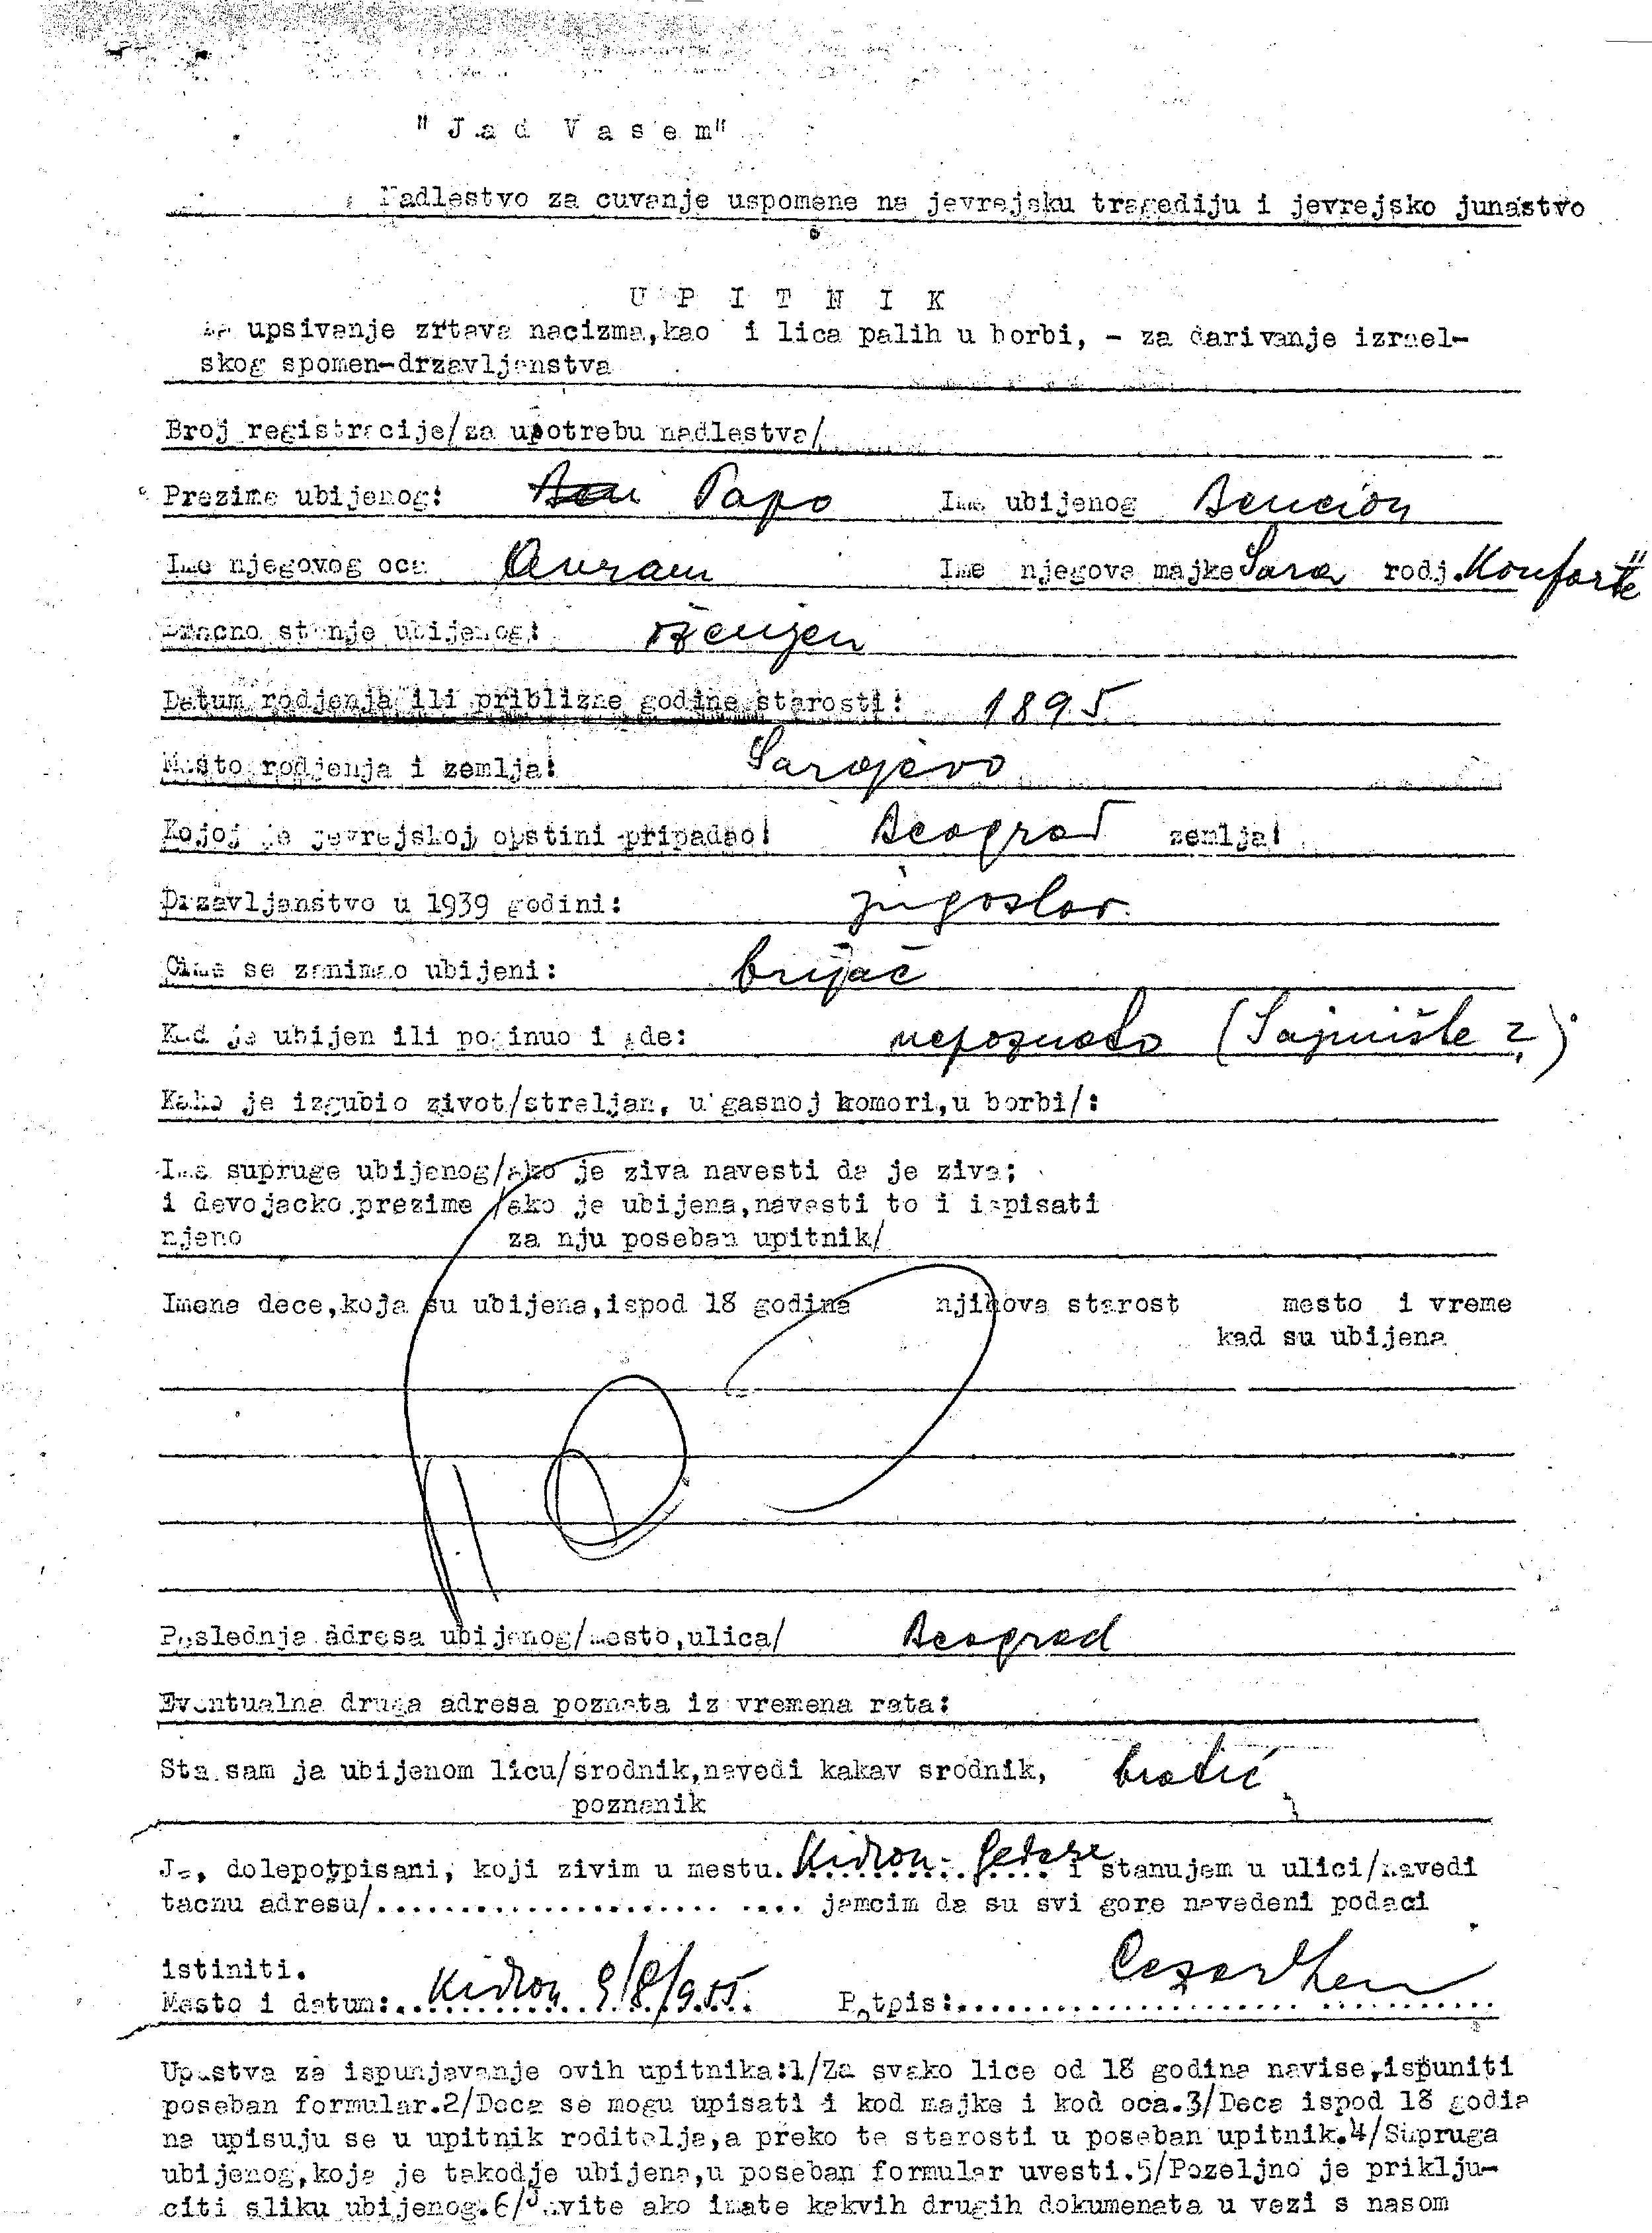 "Jad Vasem"
Nadlestvo za cuvanje uspomene na jevrejsku tragediju i jevrejsko junastvo
UPITNIK
za upsivanje zrtava nacizma,kao i lica palih u borbi, - za darivanje izrael-
skog spomen-drzavljenstva
Broj registracije/za upotrebu nadlestva/
Prezime ubijenog: Papo Ime ubijenog Bencion
Ime njegovog oca Avram Ime njegove majke Sara rodj. Konforte
Bracno stanje ubijenog: oženjen
Datum rodjenja ili priblizne godine starosti: 1895
Mesto rodjenja i zemlja: Sarajevo
Kojoj je jevrejskoj opstini pripadao: Beograd zemlja:
Drzavljanstvo u 1939 godini: jugoslov.
Cime se zanimao ubijeni: brijač
Kad je ubijen ili poginuo i gde: nepoznato (Sajmište ?)
Kako je izgubio zivot/streljan, u gasnoj komori,u borbi/:
Ime supruge ubijenog/ako je ziva navesti da je ziva;
i devojacko prezime /ako je ubijena,navesti to i ispisati
njeno za nju poseban upitnik/
Imena dece,koja su ubijena,ispod 18 godina njihova starost mesto i vreme
kad su ubijena
Poslednja adresa ubijenog/mesto,ulica/ Beograd
Eventualna druga adresa poznata iz vremena rata:
Sta sam ja ubijenom licu/srodnik,navedi kakav srodnik, bratić
poznanik
Ja, dolepotpisani, koji zivim u mestu. Kidron- Gedera i stanujem u ulici/navedi
tacnu adresu/..................... .... jamcim da su svi gore navedeni podaci
istiniti.
Mesto i datum: Kidron 9/8/955. Potpis:
Upustva za ispunjavanje ovih upitnika:1/Za svako lice od 18 godina navise,ispuniti
poseban formular.2/Deca se mogu upisati i kod majke i kod oca.3/Deca ispod 18 godia
na upisuju se u upitnik roditelja,a preko te starosti u poseban upitnik.4/Supruga
ubijenog,koja je takodje ubijena,u poseban formular uvesti.5/Pozeljno je priklju-
citi sliku ubijenog.6/Javite ako imate kakvih drugih dokumenata u vezi s nasom